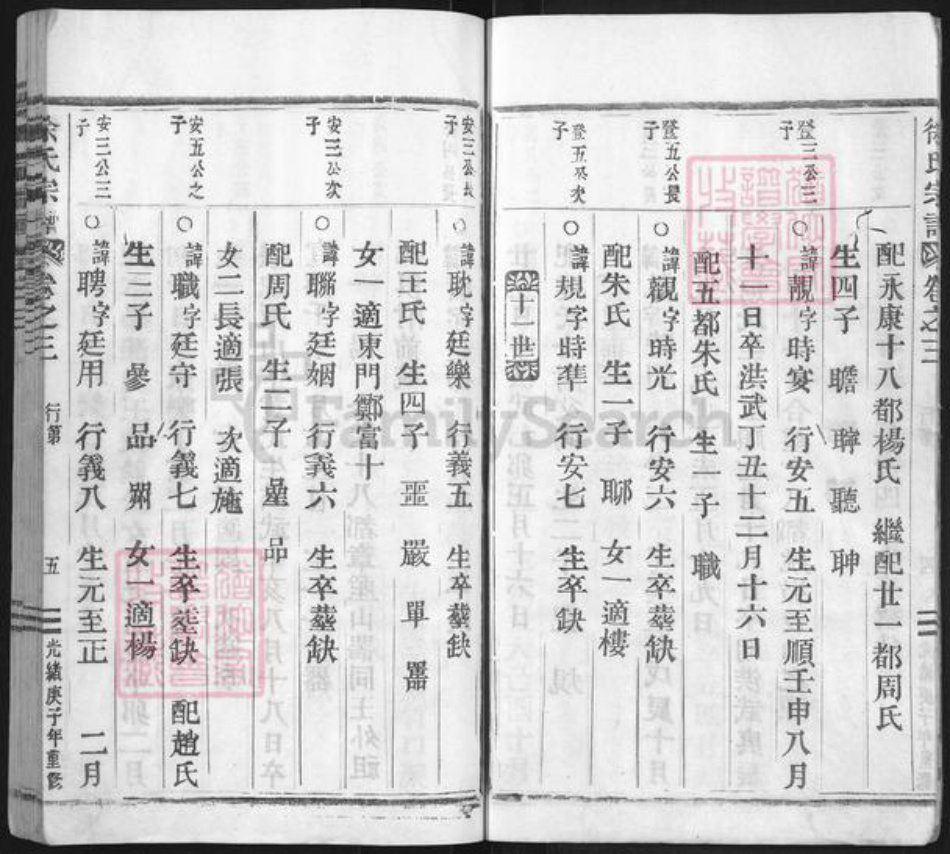 徐氏宗譜 卷之三
配永康十八都楊氏 繼配廿一都周氏
生四子 瞻 聹 聽 聃
登三公三子
諱靚字時宴 行安五 生元至順壬申八月
十一日卒洪武丁丑十二月十六日
配五都朱氏 生一子 職
登五公長子
諱觀字時光 行安六 生卒塟缺
配朱氏 生一子 聊 女一適樓
登五公次子
諱規字時準 行安七 生卒缺
十一世
安三公長子
諱耽字廷樂 行義五 生卒塟缺
配王氏 生四子 噩 嚴 單 噐
女一適東門鄭富十
安三公次子
諱聯字廷姻 行義六 生卒塟缺
配周氏 生二子 星 品
女二長適張 次適施
安五公之子
諱職字廷守 行義七 生卒塟缺 配趙氏
生三子參 品 喌 女一適楊
安三公三子
諱聘字廷用 行義八 生元至正 二月
徐氏宗譜 卷之三 行第 五 光緒庚子年重修
FamilySearch